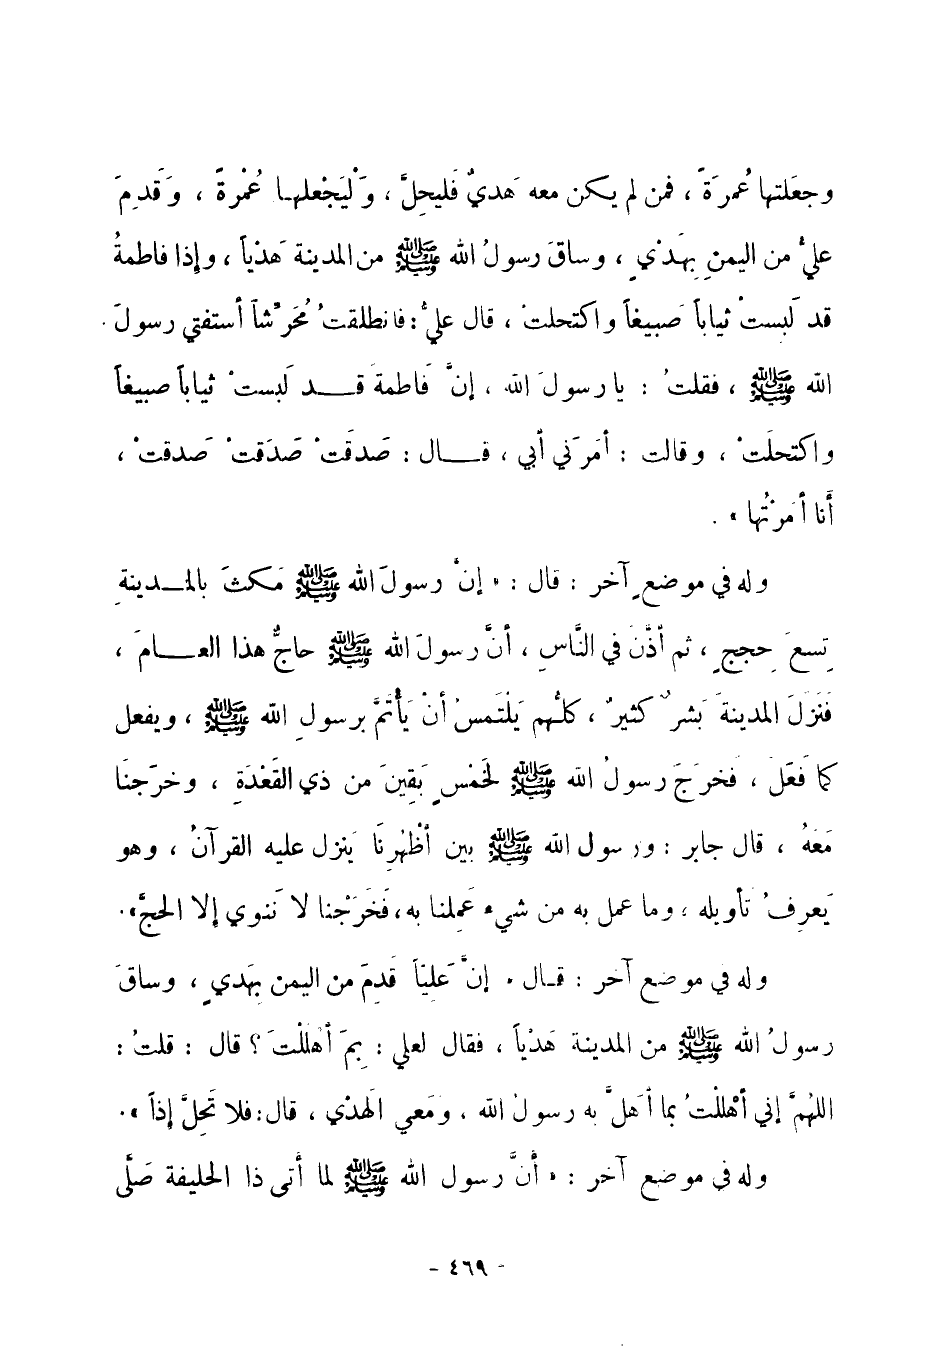 وجعَلتها عُمرَةً ، فمن لم يكن معه هَديٌ فَليحِلَّ ، وَلْيَجْعلهـا عُمْرةً ، وَقَدِمَ
عليٌّ من اليمنِ بِهَدْيٍ ، وساقَ رسولُ الله ﷺ من المدينة هَدْياً ، وإذا فاطمةُ
قد لَبستْ ثياباً صَبيغاً واكتحلتْ ، قال عليٌّ : فانطلقتُ مُحَرِّشاً أستفتي رسولَ
الله ﷺ ، فقلتُ : يا رسولَ الله ، إنَّ فَاطمةَ قـــد لَبستْ ثياباً صبيغاً
واكتحلَتْ ، وقالت : أمَرَني أبي ، قـــال : صَدقَتْ صَدَقتْ صَدقتْ ،
أنا أمَرْتُها » .
وله في موضعٍ آخر : قال : « إنَّ رسولَ الله ﷺ مَكثَ بالمـدينةِ
تِسعَ حِججٍ ، ثم أذَّنَ في النَّاسِ ، أنَّ رسولَ الله ﷺ حاجٌّ هذا العـــامَ ،
فَنَزلَ المدينةَ بَشرٌ كثيرٌ ، كلُّهم يَلْتَمسُ أنْ يَأْتَمَّ برسولِ الله ﷺ ، ويفعل
كما فَعَلَ ، فَخرَجَ رسولُ الله ﷺ لخَمْسٍ بَقِينَ من ذي القَعْدَةِ ، وخرَجنَا
مَعَهُ ، قال جابر : ورسول الله ﷺ بين أَظْهُرِنَا يَنزل عليه القرآنُ ، وهو
يَعرِفُ تأويله ، وما عمل به من شيء عَمِلنا به، فَخَرَجْنا لا نَنوي إلا الحجَّ» .
وله في موضع آخر : قـال « إنَّ عَليّاً قَدِمَ من اليمن بِهَديٍ ، وساقَ
رسولُ الله ﷺ من المدينة هَدْياً ، فقال لعلي : بِمَ أهْللْتَ ؟ قال : قلتُ :
اللهُمَّ إني أهْللْتُ بما أهَلَّ به رسولُ الله ، ومَعي الهَدْي ، قال: فلا تَحِلَّ إذاً » .
وله في موضع آخر : « أنَّ رسول الله ﷺ لما أتى ذا الحليفة صَلَّى
- ٤٦٩ -